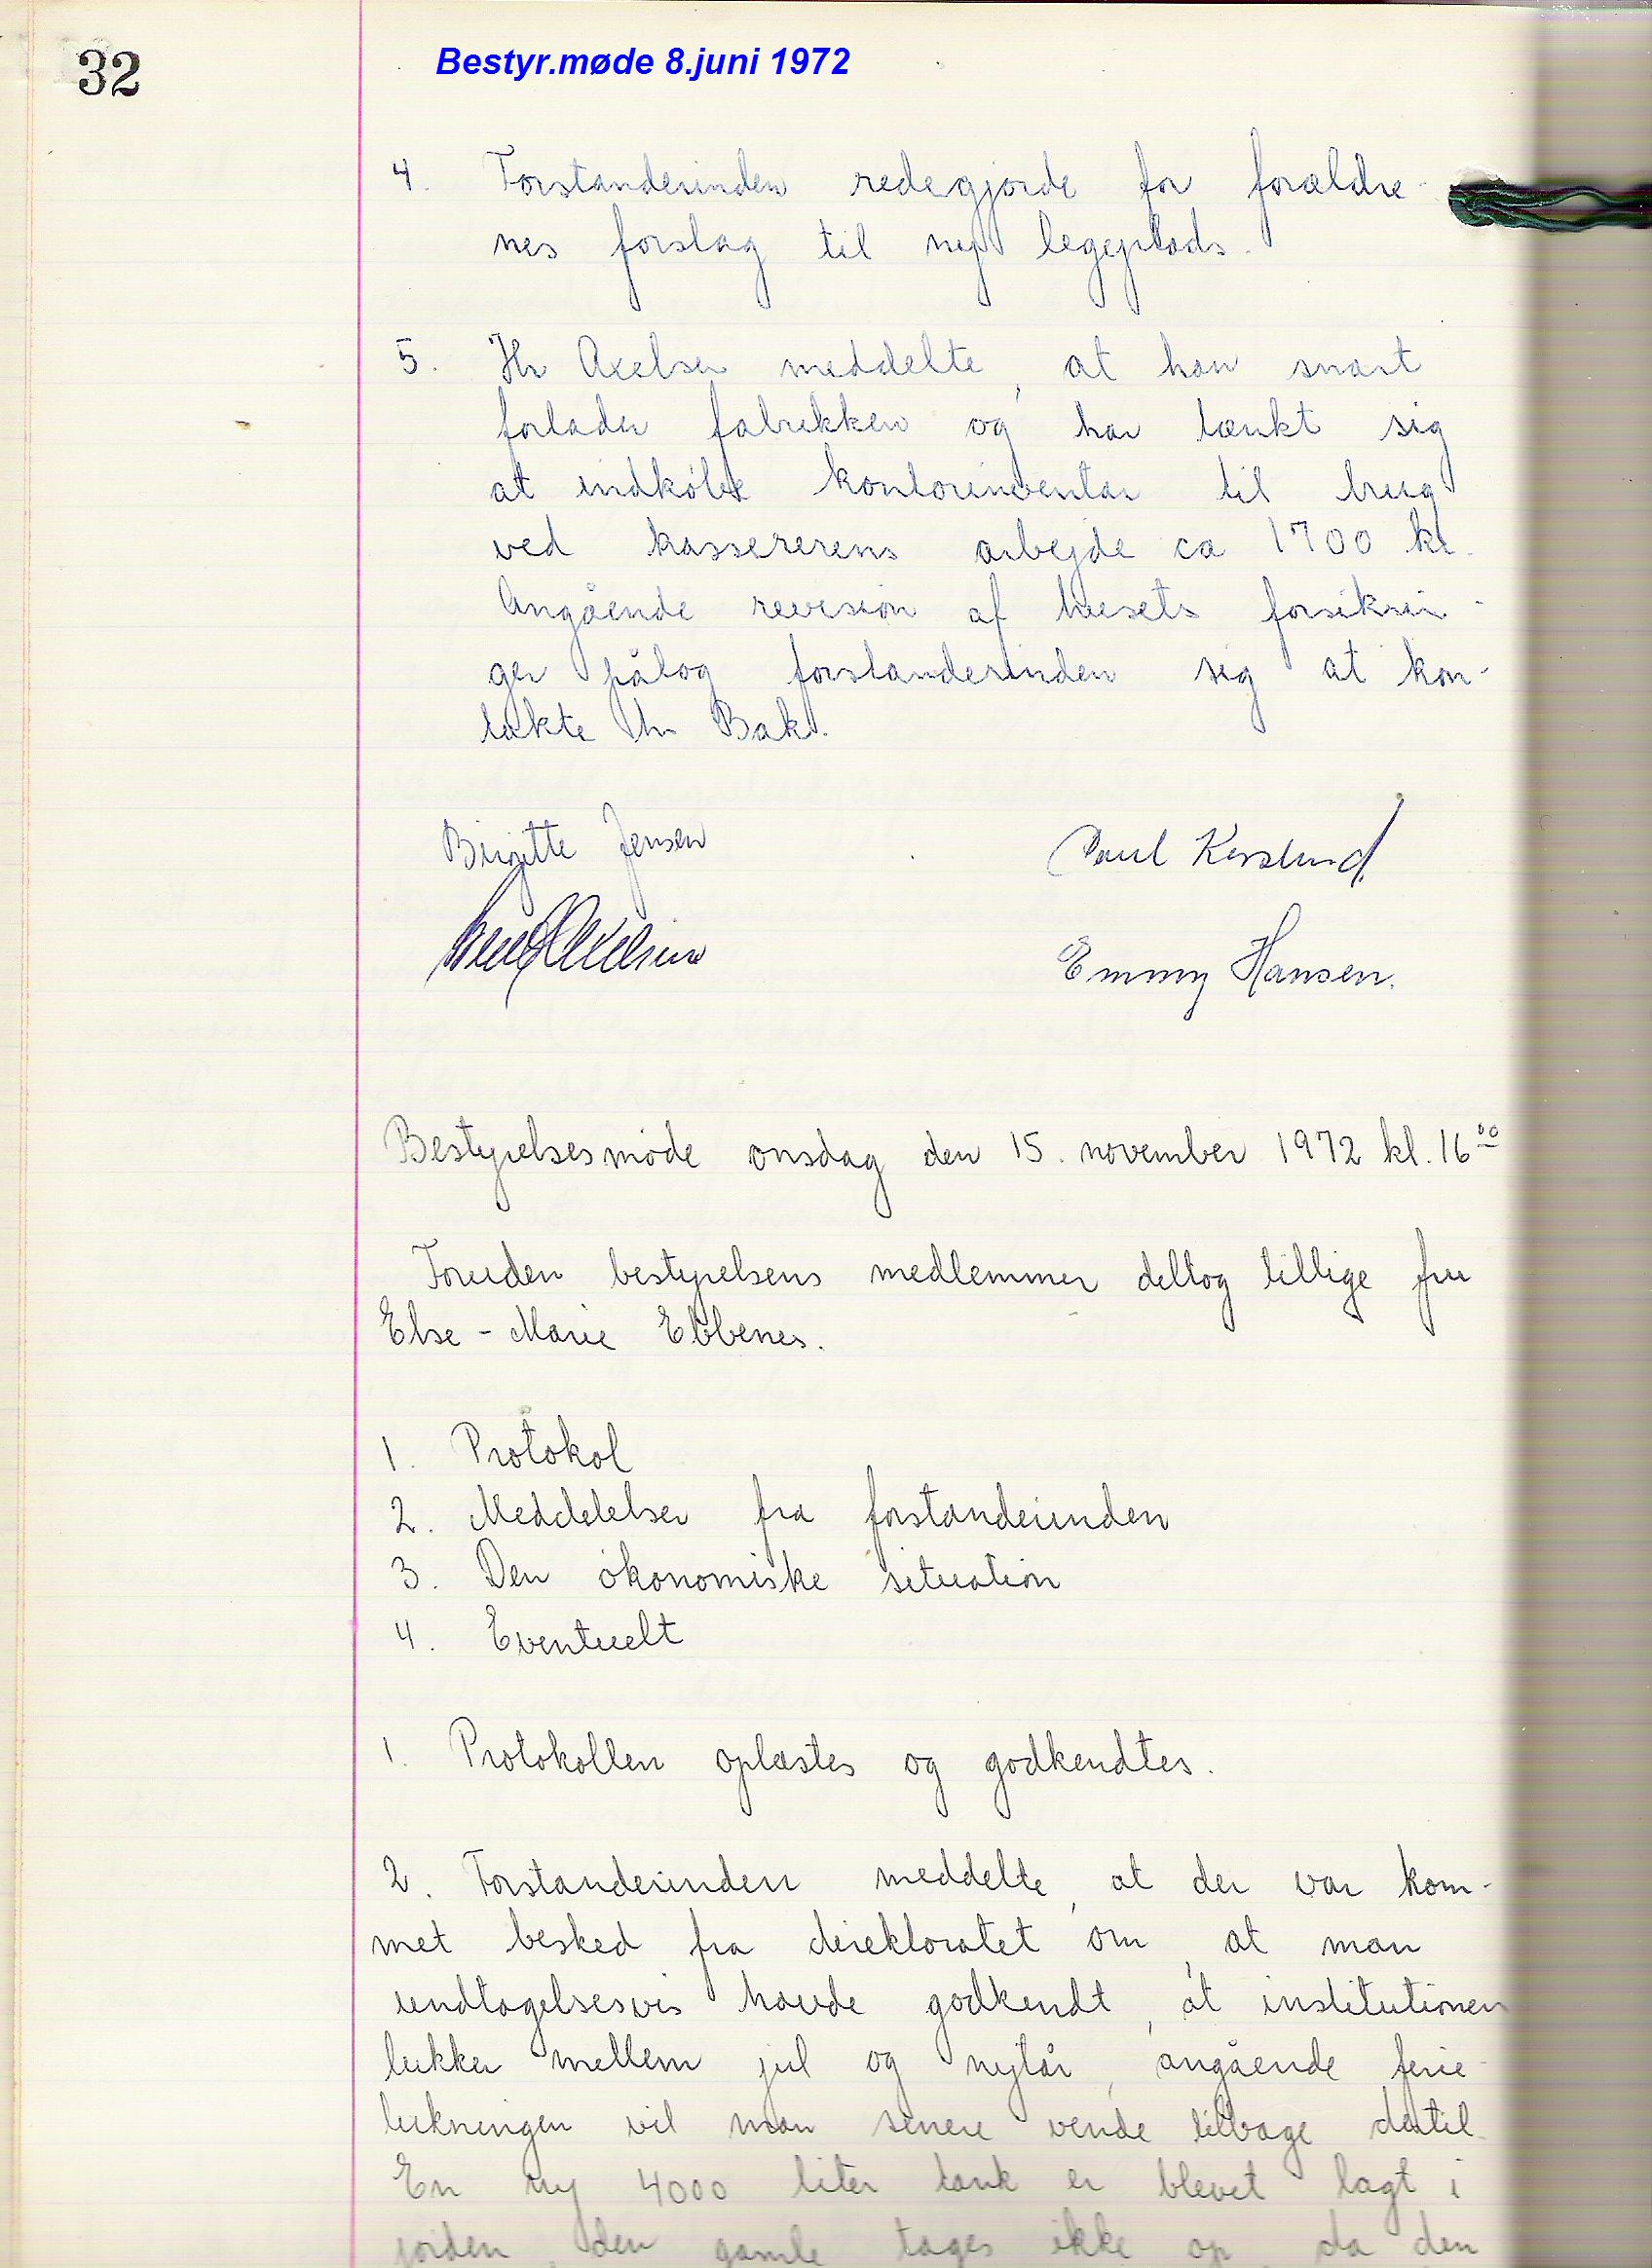 32
Bestyr.møde 8.juni 1972
4. Forstanderinden redegjorde for forældre-
nes forslag til ny legeplads.
5. Hr Axelsen meddelte, at han snart
forlader fabrikken og har tænkt sig
at indkøbe kontorinventar til brug
ved kassererens arbejde ca 1700 kr.
Angående revision af husets forsikrin-
ger påtog forstanderinden sig at kon-
takte hr Bak.
Birgitte Jensen
Poul
Axelsen
Emmy Hansen.
Bestyrelsesmøde onsdag den 15. november 1972 kl. 16⁰⁰
Foruden bestyrelsens medlemmer deltog tillige fru
Else-Marie Ebbenes.
1. Protokol
2. Meddelelser fra forstanderinden
3. Den økonomiske situation
4. Eventuelt
1. Protokollen oplæstes og godkendtes.
2. Forstanderinden meddelte, at der var kom-
met besked fra direktoratet om, at man
undtagelsesvis havde godkendt, at institutionen
lukker mellem jul og nytår, angående ferie-
lukningen vil man senere vende tilbage dertil.
En ny 4000 liter tank er blevet lagt i
jorden, den gamle tages ikke op, da den